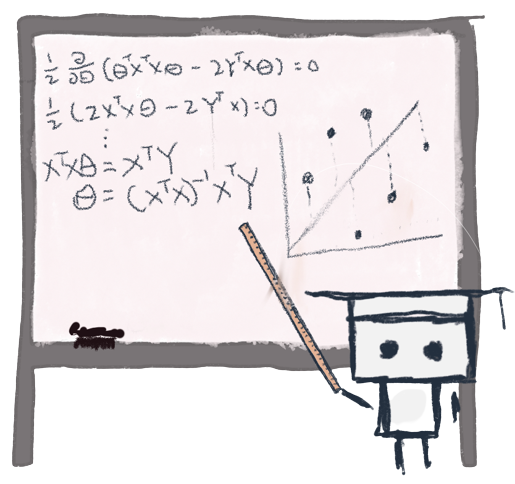 ½ ∂/∂θ (θᵀXᵀXθ - 2YᵀXθ) = 0
½ (2XᵀXθ - 2YᵀX) = 0
⋮
XᵀXθ = XᵀY
θ = (XᵀX)⁻¹XᵀY